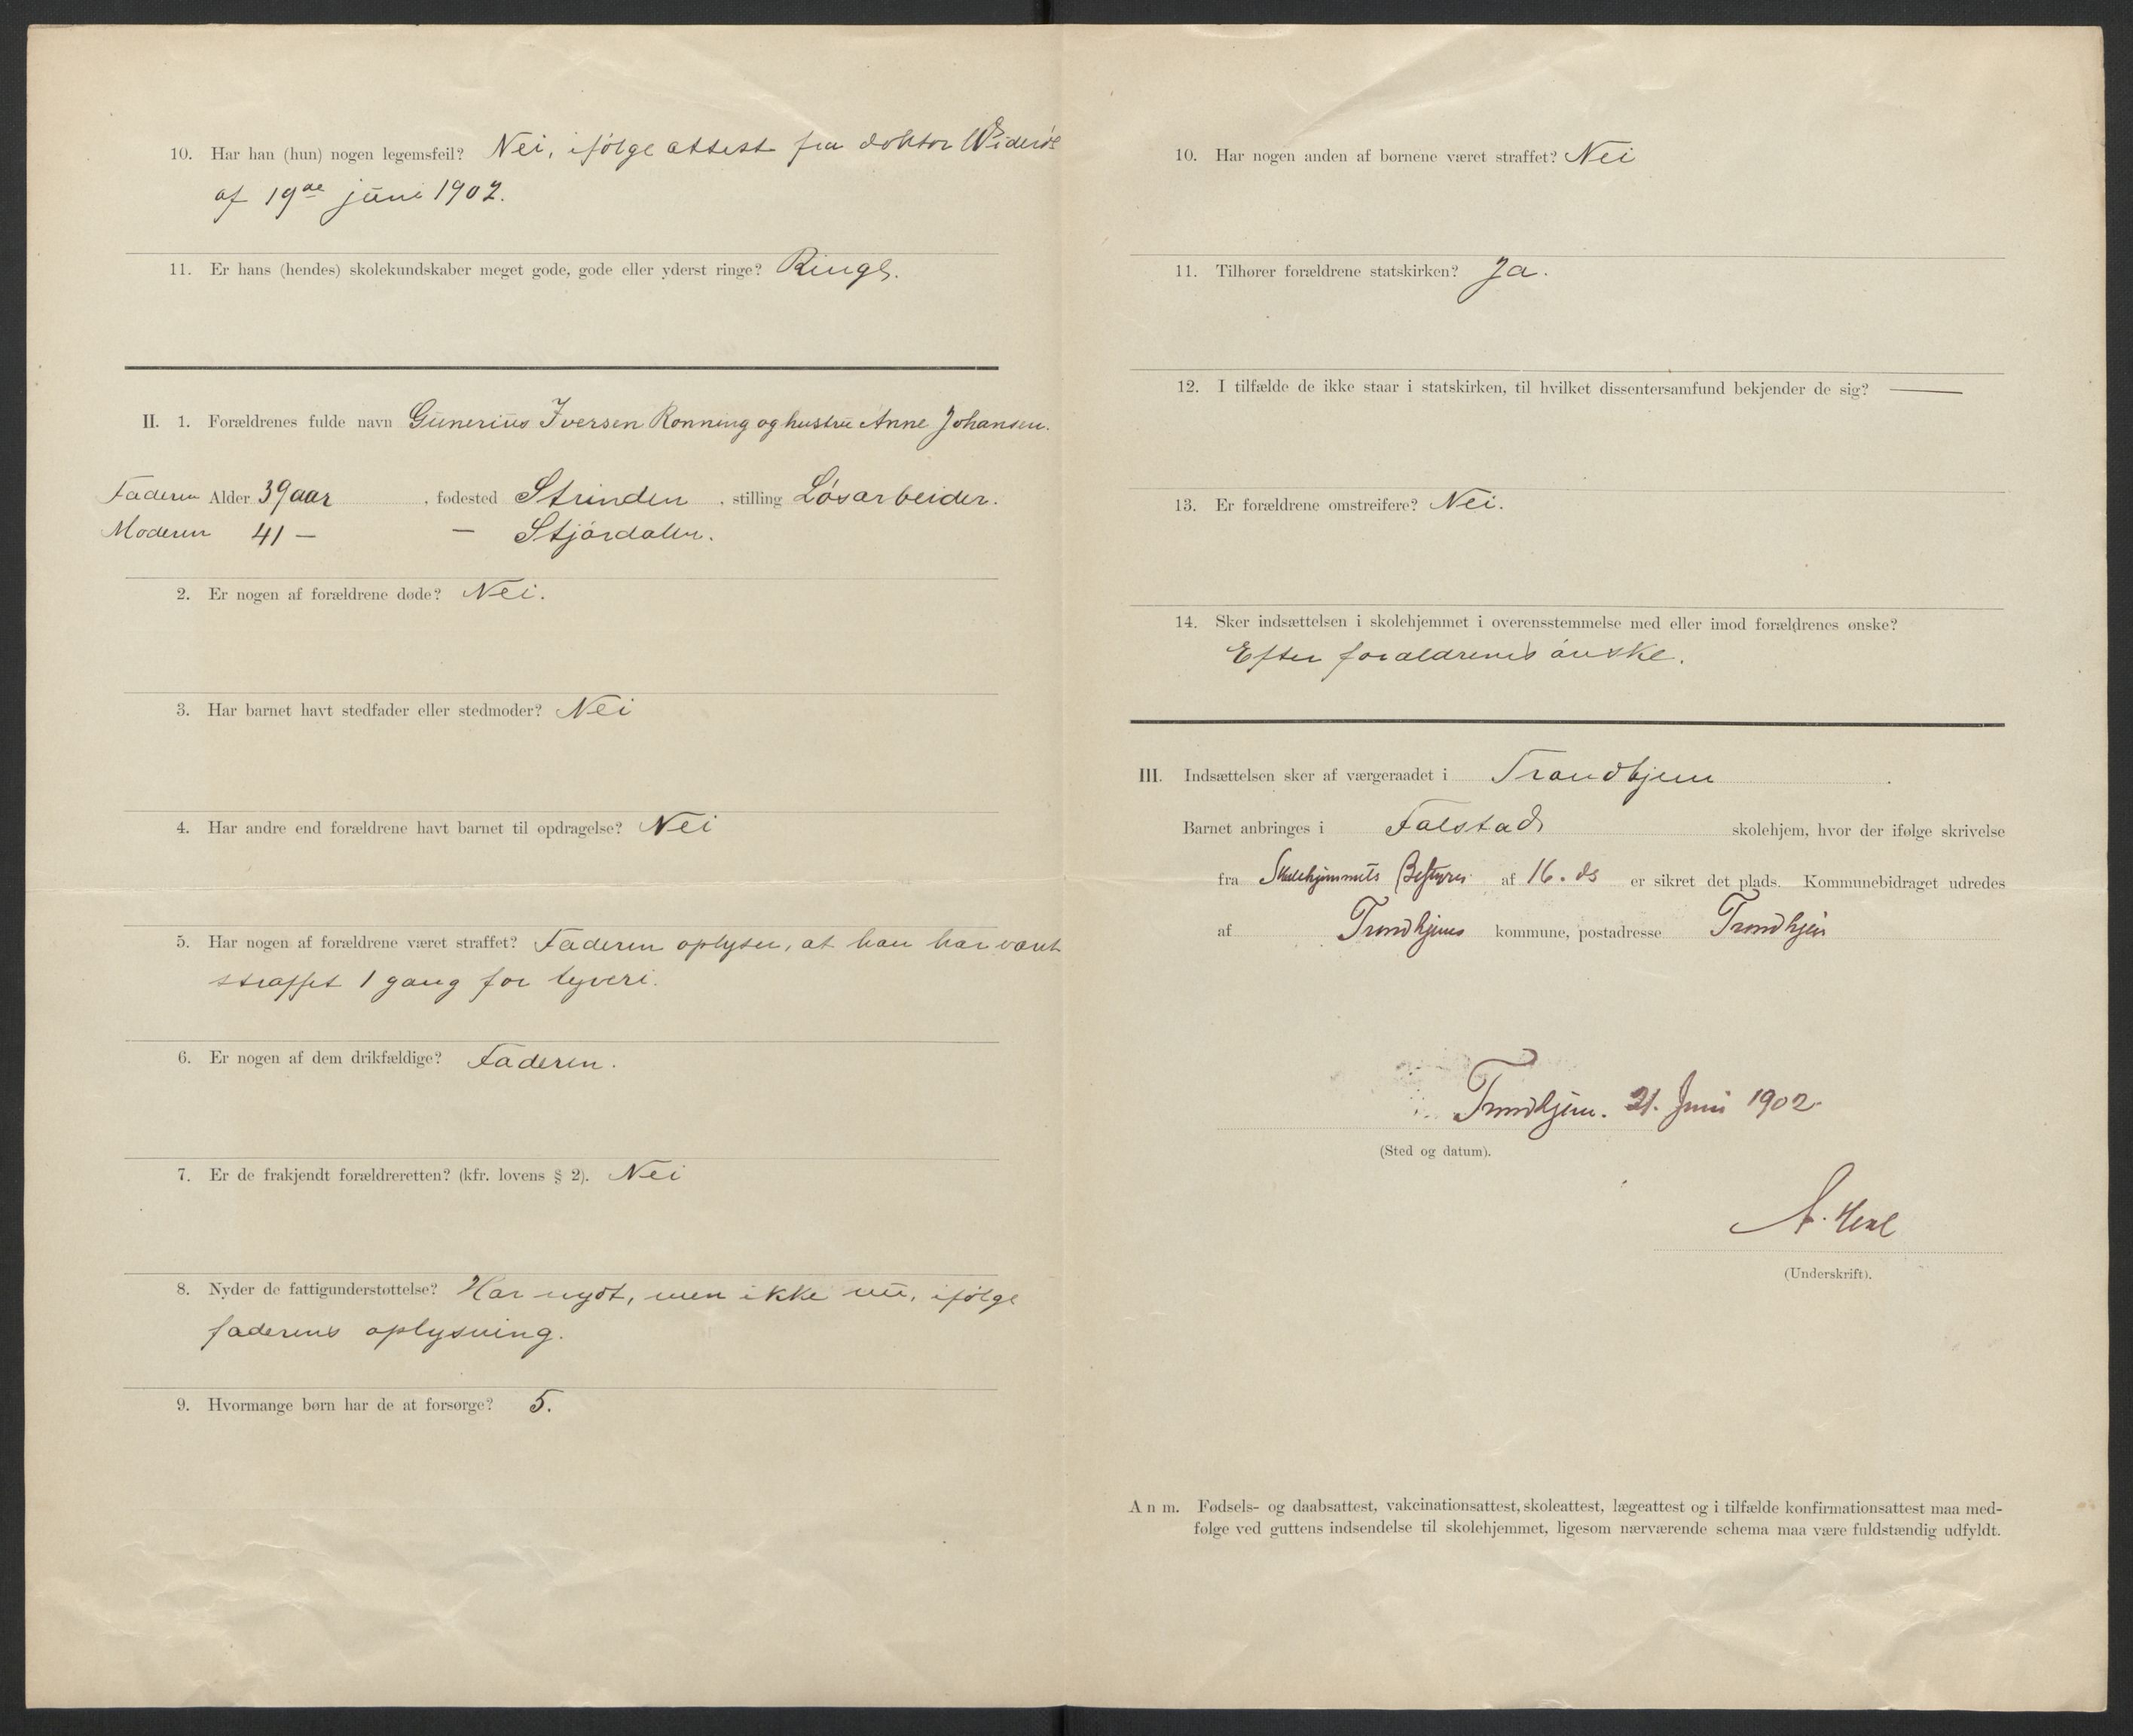 10. Har han (hun) nogen legemsfeil? Nei, ifølge attest fra doktor Widerøe
af 19de juni 1902.
11. Er hans (hendes) skolekundskaber meget gode, gode eller yderst ringe? Ringe.
II. 1. Forældrenes fulde navn Gunerius Iversen Rønning og hustru Anne Johansen.
Faderen Alder 39 aar, fødested Strinden, stilling Løsarbeider.
Moderen 41 — — Stjørdalen.
2. Er nogen af forældrene døde? Nei.
3. Har barnet havt stedfader eller stedmoder? Nei
4. Har andre end forældrene havt barnet til opdragelse? Nei
5. Har nogen af forældrene været straffet? Faderen oplyser, at han har været
straffet 1 gang for tyveri.
6. Er nogen af dem drikfældige? Faderen.
7. Er de frakjendt forældreretten? (kfr. lovens § 2). Nei
8. Nyder de fattigunderstøttelse? Har nydt, men ikke nu, ifølge
faderens oplysning.
9. Hvormange børn har de at forsørge? 5.
10. Har nogen anden af børnene været straffet? Nei
11. Tilhører forældrene statskirken? Ja.
12. I tilfælde de ikke staar i statskirken, til hvilket dissentersamfund bekjender de sig? —
13. Er forældrene omstreifere? Nei.
14. Sker indsættelsen i skolehjemmet i overensstemmelse med eller imod forældrenes ønske?
Efter forældrenes ønske.
III. Indsættelsen sker af værgeraadet i Trondhjem.
Barnet anbringes i Falstad skolehjem, hvor der ifølge skrivelse
fra Skolehjemmets Bestyrer af 16. ds er sikret det plads. Kommunebidraget udredes
af Trondhjems kommune, postadresse Trondhjem
Trondhjem. 21. Juni 1902
(Sted og datum).
(Underskrift).
Anm. Fødsels- og daabsattest, vakcinationsattest, skoleattest, lægeattest og i tilfælde konfirmationsattest maa med-
følge ved guttens indsendelse til skolehjemmet, ligesom nærværende schema maa være fuldstændig udfyldt.